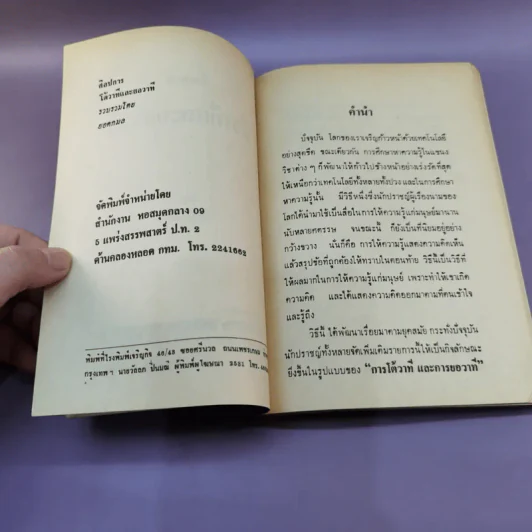 ศิลปการ
โต้วาทีและยอวาที
รวบรวมโดย
ยอดกมล
จัดพิมพ์จำหน่ายโดย
สำนักงาน หอสมุดกลาง 09
5 แพร่งสรรพสาตร์ ป.ท. 2
ด้านคลองหลอด กทม. โทร. 2241662
พิมพ์ที่โรงพิมพ์เจริญกิจ 40/43 ซอยศรีนวล ถนนเพชรเกษม
กรุงเทพฯ นายวัลลภ ปิ่นมณี ผู้พิมพ์ผู้โฆษณา 2521 โทร.
คำนำ
ปัจจุบัน โลกของเราเจริญก้าวหน้าด้วยเทคโนโลยี
อย่างสุดขีด ขณะเดียวกัน การศึกษาหาความรู้ในแขนง
วิชาต่าง ๆ ก็พัฒนาให้ก้าวไปข้างหน้าอย่างเร่งรัดที่สุด
ให้เหนือกว่าเทคโนโลยีทั้งหลายทั้งปวง และในการศึกษา
หาความรู้นั้น มีวิธีหนึ่งซึ่งนักปราชญ์ผู้เรืองนามของ
โลกได้นำมาใช้เป็นสื่อในการให้ความรู้แก่มนุษย์มานาน
นับหลายศตวรรษ จนขณะนี้ ก็ยังเป็นที่นิยมอยู่อย่าง
กว้างขวาง นั่นก็คือ การให้ความรู้แสดงความคิดเห็น
แล้วสรุปข้อที่ถูกต้องให้ทราบในตอนท้าย วิธีนี้เป็นวิธีที่
ให้ผลมากในการให้ความรู้แก่มนุษย์ เพราะทำให้เขาเกิด
ความคิด และได้แสดงความคิดออกมาตามที่ตนเข้าใจ
และรู้ถึง
วิธีนี้ ได้พัฒนาเรื่อยมาตามยุคสมัย กระทั่งปัจจุบัน
นักปราชญ์ทั้งหลายจัดเพิ่มเติมรายการนี้ให้เป็นกิจลักษณะ
ยิ่งขึ้นในรูปแบบของ "การโต้วาที และการยอวาที"